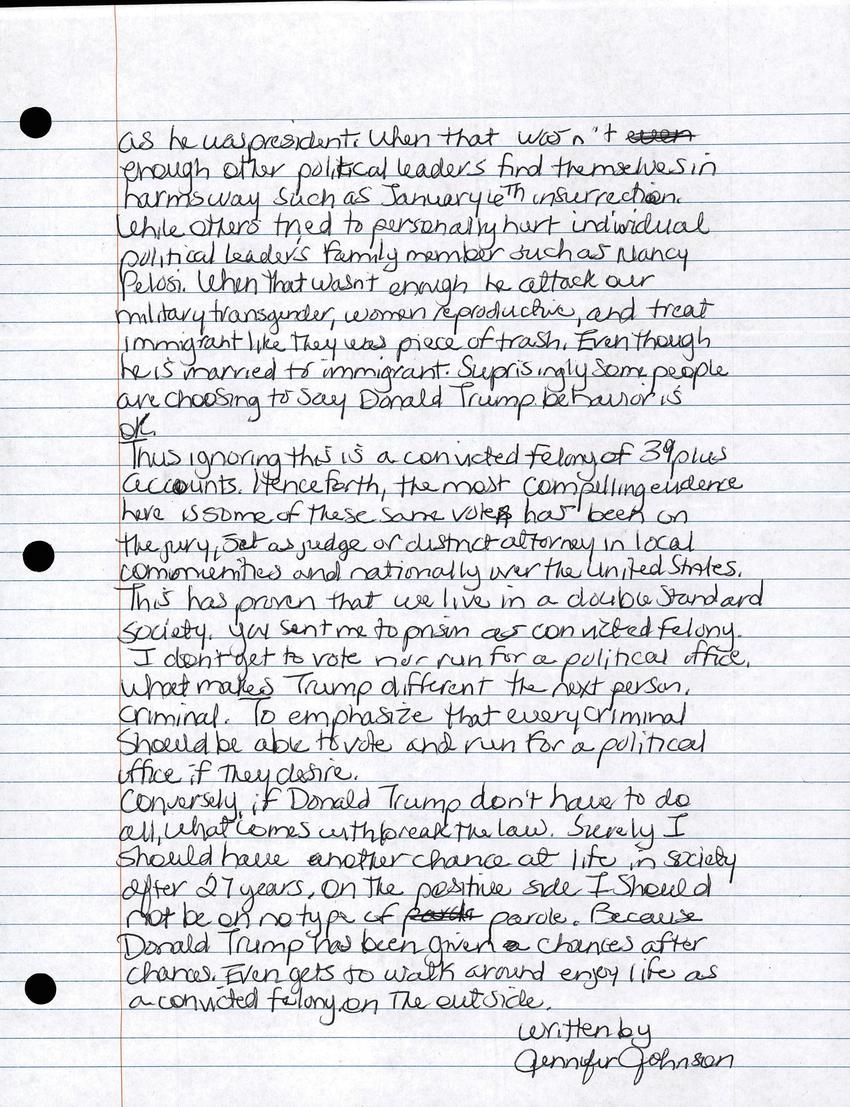 as he was president. When that wasn't even
enough other political leaders find themselves in
harms way such as January 6th insurrection.
While others tried to personally hurt individual
political leader's family member such as Nancy
Pelosi. When that wasn't enough he attack our
military transgender, women reproductive, and treat
immigrant like they was piece of trash. Even though
he is married to immigrant. Suprisingly some people
are choosing to say Donald Trump behavior is
ok.
Thus ignoring this is a convicted felony of 39 plus
accounts. Henceforth, the most compelling evidence
here is some of these same voters has been on
the jury, set as judge or district attorney in local
communities and nationally over the United States.
This has proven that we live in a double standard
society. You sent me to prison as convicted felony.
I don't get to vote nor run for a political office.
What makes Trump different the next person.
Criminal. To emphasize that every criminal
should be able to vote and run for a political
office if they desire.
Conversely, if Donald Trump don't have to do
all, what comes with break the law. Surely I
should have another chance at life in society
after 27 years. On the positive side I should
not be on no type of parole. Because
Donald Trump has been given a chances after
chances. Even gets to walk around enjoy life as
a convicted felony on the outside.
Written by
Jennifer Johnson